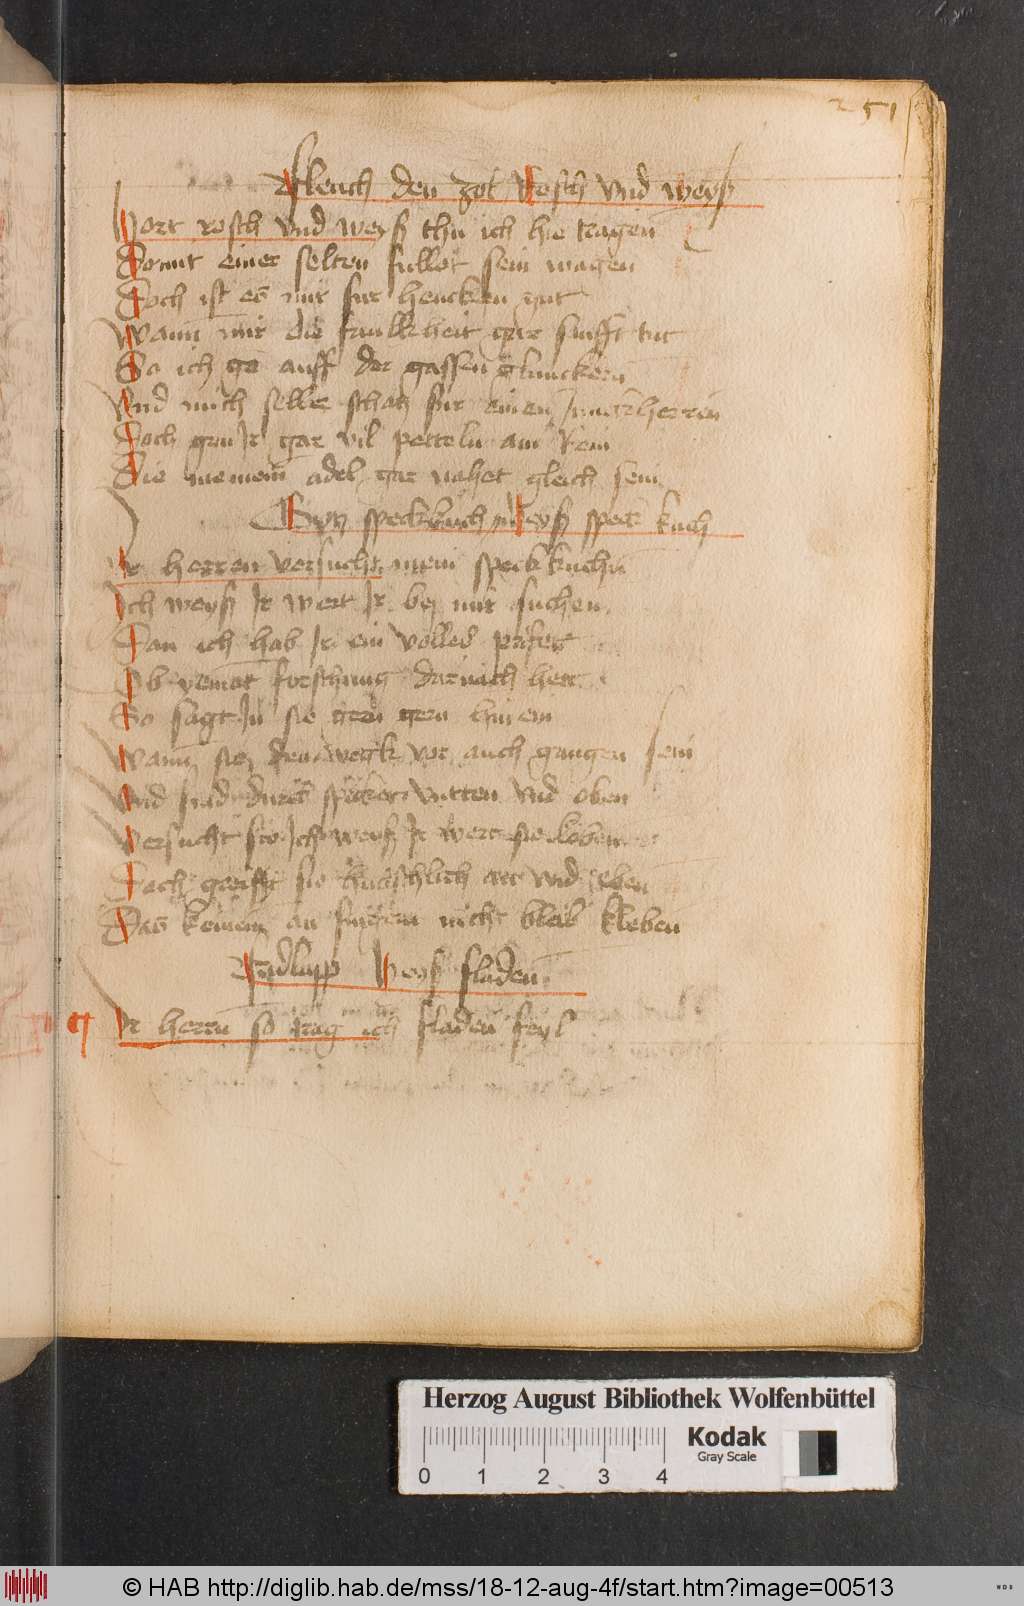 251
Fleuch den zol Rosch vnd weyß
Hort rosch vnd weyß thu ich hie tragen
Somit einer selten fullet sein magen
Doch ist es mir fur hencken gut
Wann mir die faulkheit gar sanfft tut
So ich ge auff der gassen
Vnd mich selber schatz fur einen Junckherren
Doch Ir gar vil petteln am Rein
Die meinem adel gar nahet gleich sein
speckkuch Heyß speck kuch
Ir herren versucht mein speckkuchn
Ich weyß Ir wert Ir bey mir suchen
Dan ich hab Ir ein
Ob yemant forschung darnach hett
So sagt In sie gern hin ein
Wann sie den wegk vor auch gangen sein
Vnd sind durch vntten vnd oben
Versucht sie Ich weyß Ir wert sie loben
Doch greifft sie an vnd eben
Das keinem an fingern nicht bleib kleben
Heyß fladen
Ir herrn so trag ich fladen feyl
Herzog August Bibliothek Wolfenbüttel
Kodak
Gray Scale
0 1 2 3 4
© HAB http://diglib.hab.de/mss/18-12-aug-4f/start.htm?image=00513
WDB